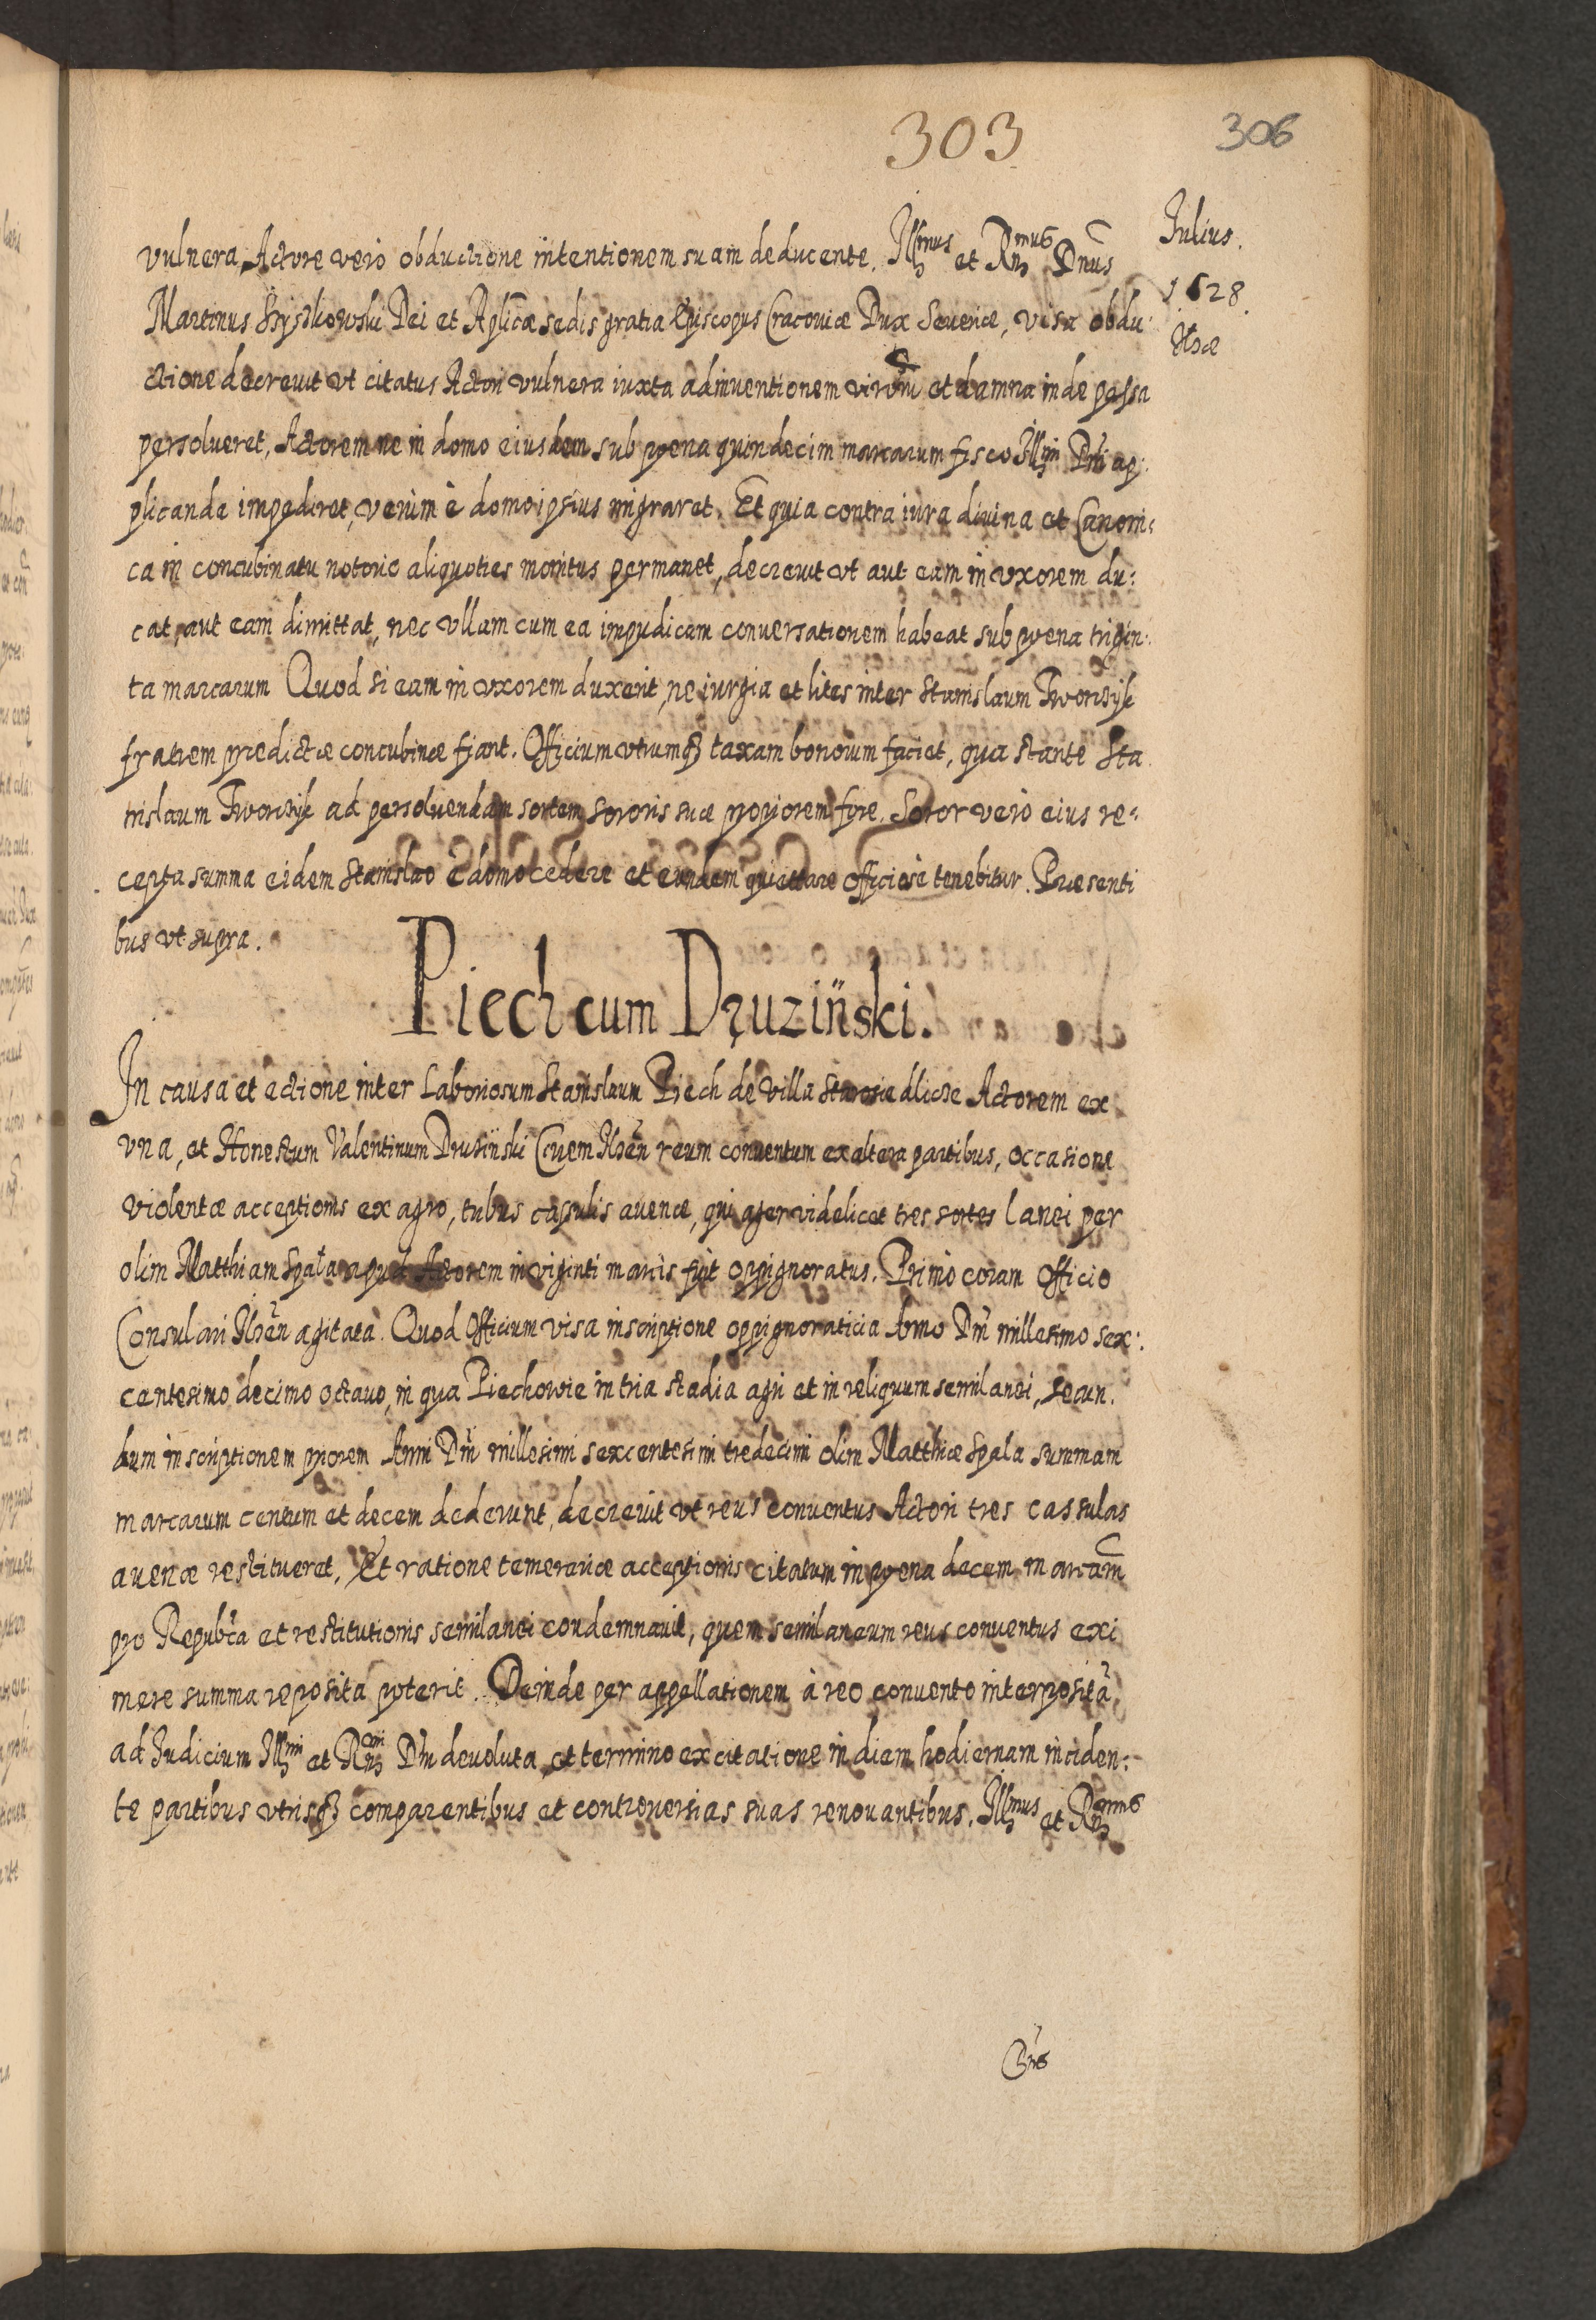 303
306
Iulius.
1628.
Ilzæ
vulnera, Actore vero obductione intentionem suam deducente. Illmus et Rndmus Dnus
Martinus Szyszkowski Dei et Aplicæ sedis gratia Episcopus Cracouiæ Dux Seueriæ, visa obdu:
ctione decreuit vt citatus Actori vulnera iuxta adinuentionem virorum et damna inde passa
persolueret, Actorem ne in domo eiusdem sub pœna quindecim marcarum fisco Illmi Dni ap:
plicanda impediret, verùm è domo ipsius migraret. Et quia contra iura diuina et Canoni:
ca in concubinatu notorio aliquoties monitus permanet, decreuit vt aut eam in vxorem du:
cat, aut eam dimittat, nec vllam cum ea impudicam conuersationem habeat sub pœna trigin:
ta marcarum Quod si eam in vxorem duxerit, ne iurgia et lites inter Stanislaum
fratrem prædictæ concubinæ fiant. Officium vtrumq taxam bonorum faciet, qua stante Sta
nislaum ad persoluendam sortem sororis suæ propiorem fore. Soror verò eius re:
cepta summa eidem Stanislao è domo cedere et eundem quiettare officiosè tenebitur. Præsenti
bus vt supra.
Piech cum Druzinski.
In causa et actione inter Laboriosum Stanislaum Piech de Villa Starosiedlicze Actorem ex
vna, et Honestum Valentinum Druzinski Ciuem Ilzen reum conuentum ex altera partibus, occasione
violentæ acceptionis ex agro, tribus cassulis auenæ, qui ager videlicet tres sortes lanei per
olim Matthiam Spala apud Actorem in viginti marcis fuit oppignoratus. Primò coram Officio
Consulari Ilzen agitata. Quod Officium visa inscriptione oppignoraticia Anno Dni millesimo sex:
centesimo decimo octauo, in qua Piechowie in tria stadia agri et in reliquum semilanei, secun.
dum inscriptionem priorem Anni Dni millesimi sexcentesimi tredecimi olim Matthiæ Spala summam
marcarum centum et decem dederunt, decreuit vt reus conuentus Actori tres cassulas
auenæ restitueret, Et ratione temerariæ acceptionis citatum in pœna decem marcarm
pro Republca et restitutionis semilanei condemnauit, quem semilaneum reus conuentus exi
mere summa reposita poterit. Deinde per appellationem à reo conuento interposita
ad Iudicium Illmi et Rndmi Dni deuoluta, et termino ex citatione in diem hodiernam inciden:
te partibus vtrisq comparentibus et controuersias suas renouantibus. Illmus et Rndmus
Dns